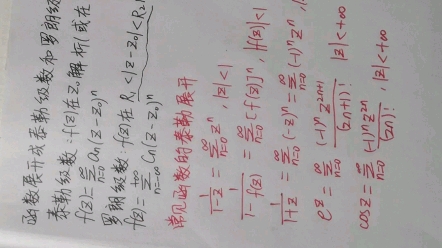 函数展开成泰勒级数和罗朗级
泰勒级数:f(z)在z₀解析(或在
f(z)=∑_{n=0}^{∞} aₙ(z-z₀)ⁿ
罗朗级数:f(z)在 R₁<|z-z₀|<R₂
f(z)=∑_{n=-∞}^{+∞} Cₙ(z-z₀)ⁿ
常见函数的泰勒展开
1/(1-z)=∑_{n=0}^{∞} zⁿ, |z|<1
1/(1-f(z))=∑_{n=0}^{∞}[f(z)]ⁿ, |f(z)|<1
1/(1+z)=∑_{n=0}^{∞}(-z)ⁿ=∑_{n=0}^{∞}(-1)ⁿzⁿ,
e^z=∑_{n=0}^{∞} (-1)ⁿz^{2n+1}/(2n+1)!, |z|<+∞
cosz=∑_{n=0}^{∞} (-1)ⁿz^{2n}/(2n)!, |z|<+∞